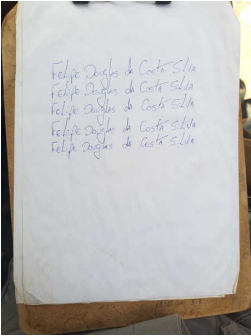 Felipe Douglas da Costa Silva
Felipe Douglas da Costa Silva
Felipe Douglas da Costa Silva
Felipe Douglas da Costa Silva
Felipe Douglas da Costa Silva